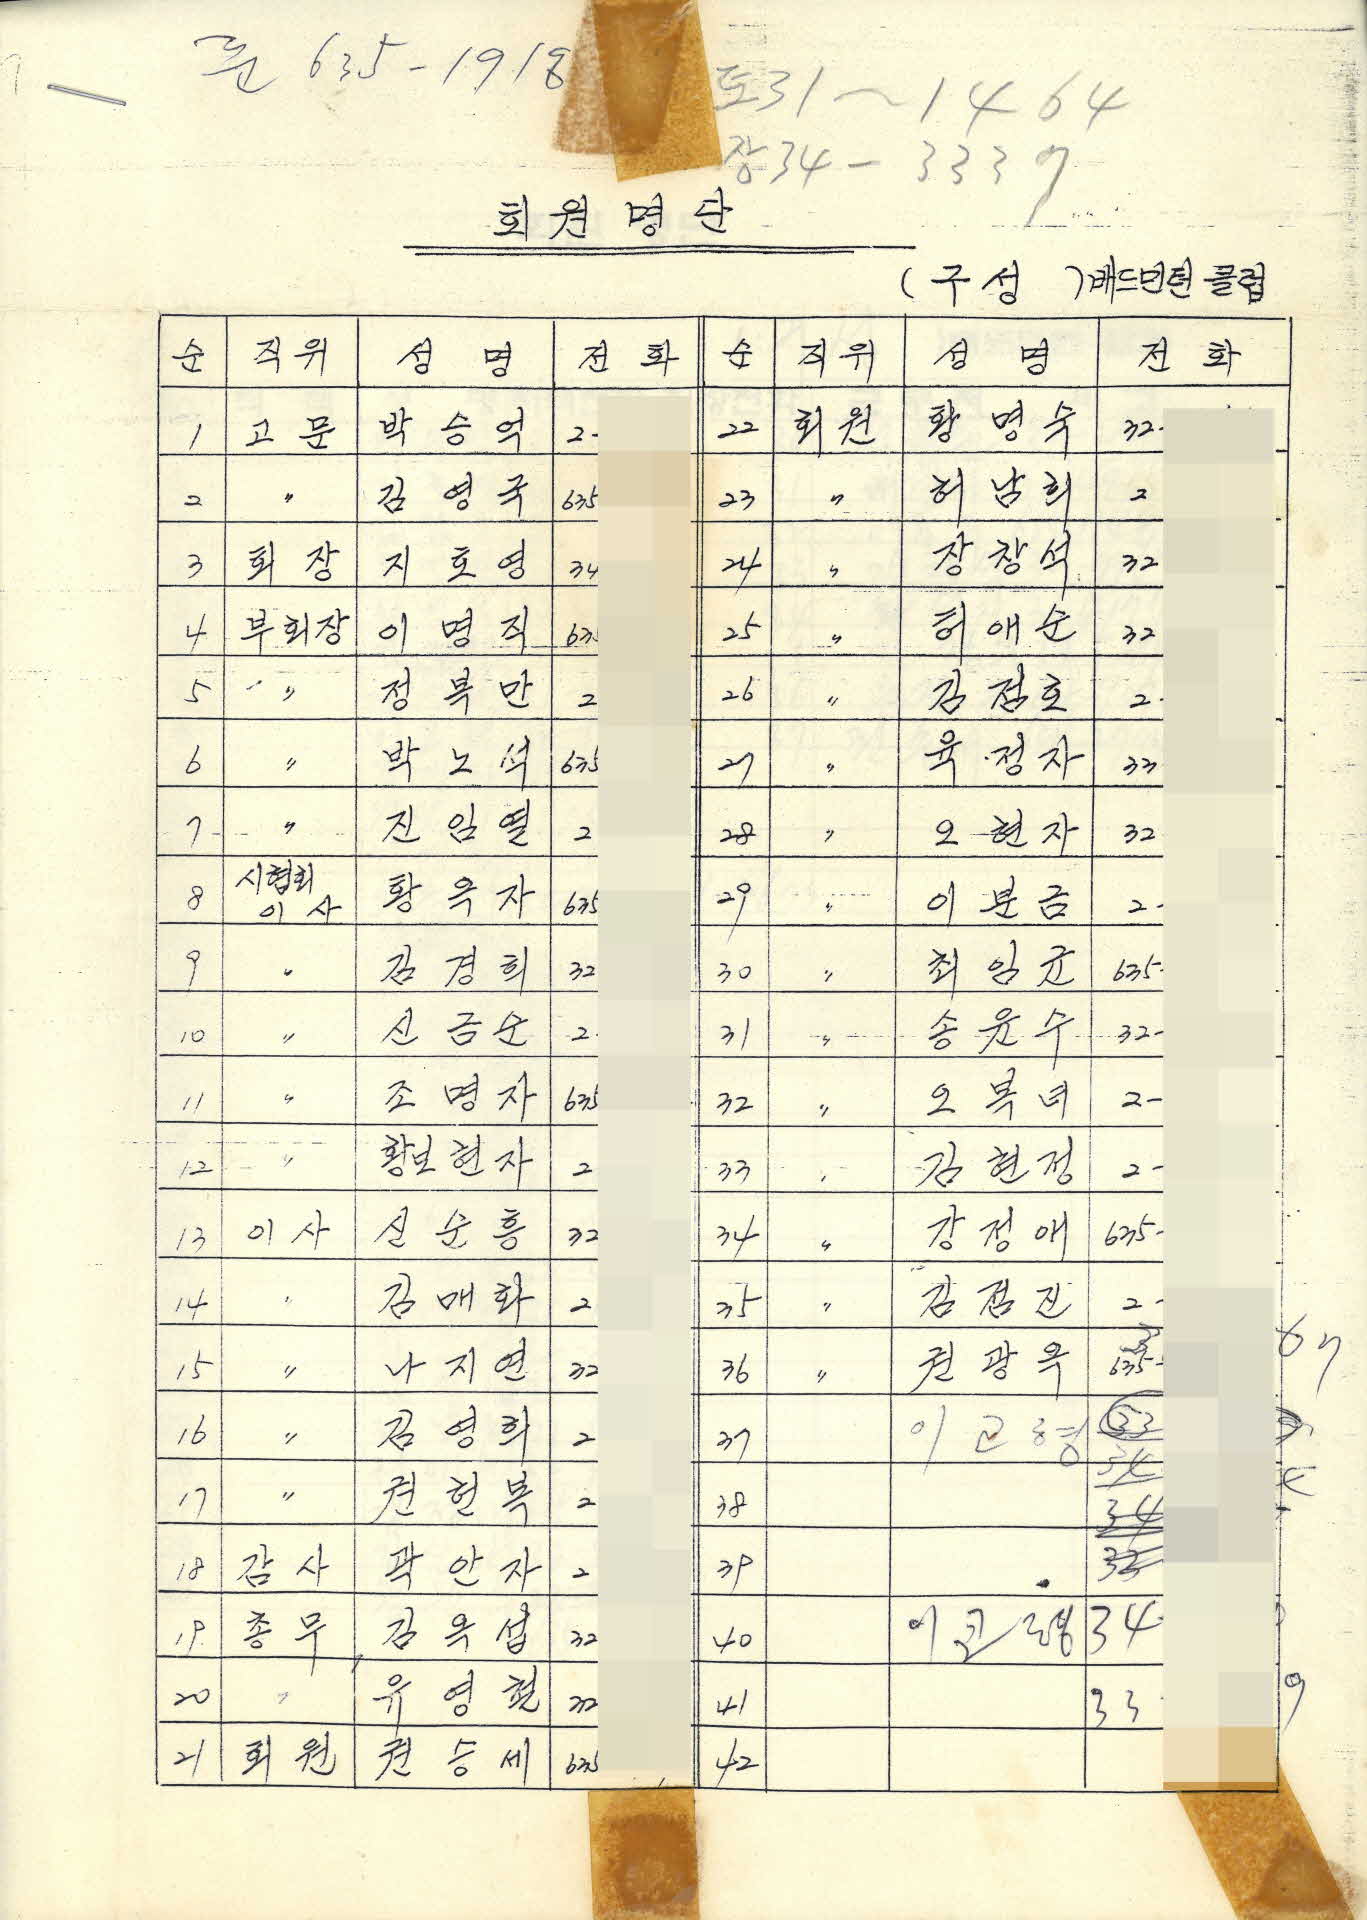 635-1918
31~1464
장34-3337
회원명단
(구성 )배드민턴클럽
순 직위 성명 전화 순 직위 성명 전화
1 고문 박승억 2- 22 회원 황명숙 32-
2 〃 김영국 635 23 〃 허남희 2
3 회장 지호영 34 24 〃 장창석 32
4 부회장 이명직 635 25 〃 허애순 32
5 〃 정복만 2 26 〃 김점호 2-
6 〃 박노석 635 27 〃 육정자 33
7 〃 진임열 2 28 〃 오현자 32
8 시협회이사 황옥자 635 29 〃 이분금 2-
9 〃 김경희 32 30 〃 최임균 635-
10 〃 신금순 2- 31 〃 송윤수 32-
11 〃 조명자 635 32 〃 오복녀 2-
12 〃 황보현자 2 33 〃 김현정 2-
13 이사 신순흥 32 34 〃 강정애 635-
14 〃 김매화 2 35 〃 김점진 2-
15 〃 나지연 32 36 〃 권광옥 635- 67
16 〃 김영희 2 37 33
34
17 〃 권헌복 2 38 34
18 감사 곽안자 2 39 33
19 총무 김옥섭 32 40 34-
20 〃 유영현 32 41 33- 9
21 회원 권승세 635 42